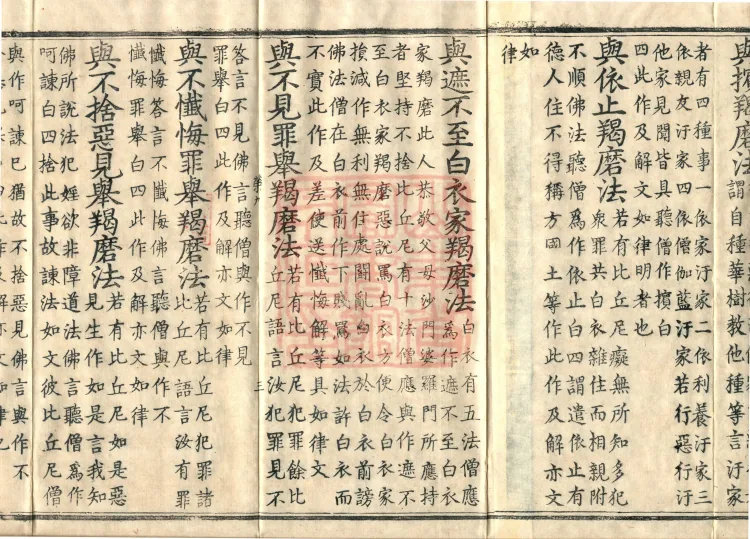 與擯羯磨法謂自種華樹教他種等言汙家
者有四種事一依家汙家二依利養汙家三
依親友汙家四依僧伽藍汙家若行惡行汙
他家見聞皆具聽僧作擯白
四此作及解文如律明者也
與依止羯磨法若有比丘尼癡無所知多犯
眾罪共白衣雜住而相親附
不順佛法聽僧為作依止白四謂遣依止有
德人住不得稱方國土等作此作及解亦文
如
律
與遮不至白衣家羯磨法白衣有五法僧應
為作遮不至白衣
家羯磨此人恭敬父母沙門婆羅門所應持
者堅持不捨比丘尼有十法僧應與作遮不
至白衣家羯磨惡說罵白衣方便令白衣家
損減作無利無住處鬪亂白衣於白衣前謗
佛法僧在白衣前作下賤罵如法許白衣而
不實此作及差使送懺悔解等具如律文
與不見罪舉羯磨法若有比丘尼犯罪餘比
丘尼語言汝犯罪見不
三
答言不見佛言聽僧與作不見
罪舉白四此作及解亦文如律
與不懺悔罪舉羯磨法若有比丘尼犯罪諸
比丘尼語言汝有罪
懺悔答言不懺悔佛言聽僧與作不
懺悔罪舉白四此作及解亦文如律
與不捨惡見舉羯磨法若有比丘尼如是惡
見生作如是言我知
佛所說法犯婬欲非障道法佛言聽僧為作
呵諫白四捨此事故諫法如文彼比丘尼僧
與作呵諫已猶故不捨惡見佛言與作不